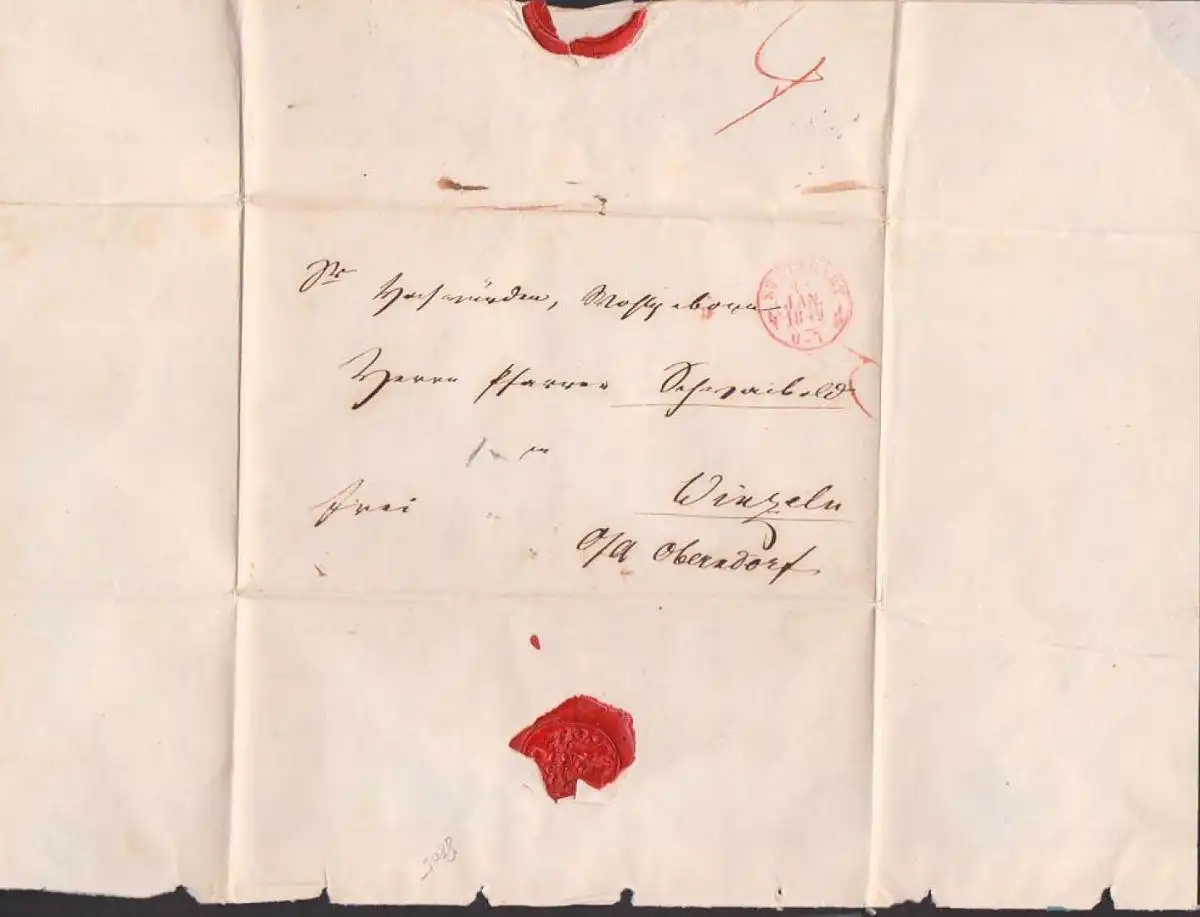 Sr
Hochwürden, Wohlgeboren
Herrn Pfarrer Schwaibold
in
Winzeln
frei
O/A Oberndorf
STUTTGART
JAN.
1849
3088